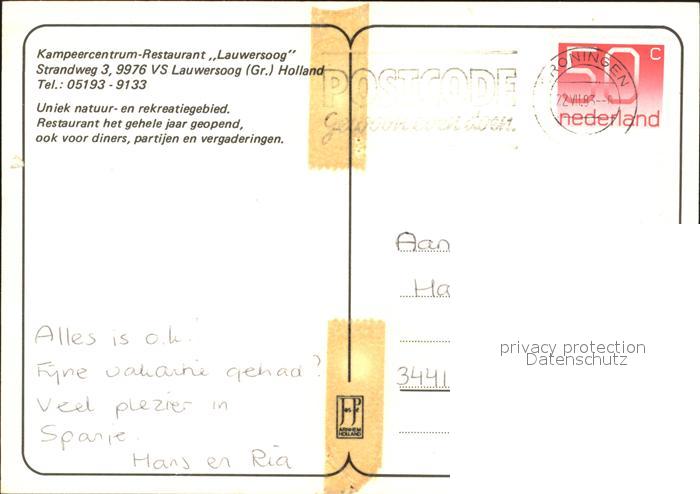 Kampeercentrum-Restaurant „Lauwersoog"
Strandweg 3, 9976 VS Lauwersoog (Gr.) Holland
Tel.: 05193 - 9133
Uniek natuur- en rekreatiegebied.
Restaurant het gehele jaar geopend,
ook voor diners, partijen en vergaderingen.
POSTCODE
gewoon even doen.
GRONINGEN
22.VII.83
50 c
nederland
Aan
Ha
3441
privacy protection
Datenschutz
Alles is o.k.
Fijne vakantie gehad?
Veel plezier in
Spanje.
Hans en Ria
JosPé
ARNHEM
HOLLAND